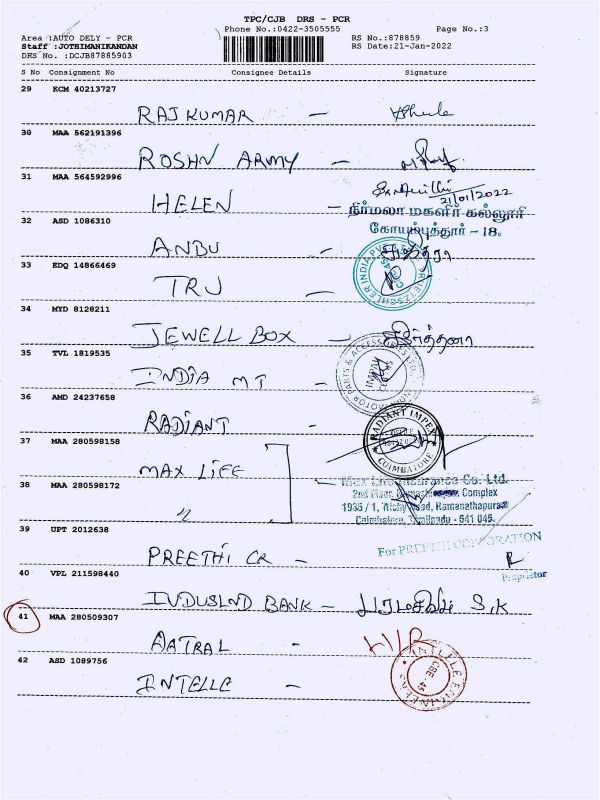 TPC/CJB DRS - PCR
Phone No.:0422-3505555
Page No.:3
Area :AUTO DELY - PCR
RS No.:878859
Staff :JOTHIMANIKANDAN
RS Date:21-Jan-2022
DRS No. :DCJB87885903
S No Consignment No Consignee Details Signature
29 KCM 40213727
RAJKUMAR -
30 MAA 562191396
ROSHN ARMY -
31 MAA 564592996
21/01/2022
HELEN - நிர்மலா மகளிர் கல்லூரி
32 ASD 1086310
கோயம்புத்தூர் - 18.
ANBU -
33 EDQ 14866469
TRJ -
34 MYD 8128211
JEWELL BOX - கீர்த்தனா
35 TVL 1819535
INDIA MT -
36 AMD 24237658
RADIANT -
RADIANT IMPEX
COIMBATORE
37 MAA 280598158
MAX LIFE
Max Life Insurance Co. Ltd.
38 MAA 280598172
2nd Floor, Complex
" 1936 / 1, Trichy Road, Ramanathapuram
Coimbatore, Tamilnadu - 641 045.
39 UPT 2012638
For PREETHI CORPORATION
PREETHI CR -
Proprietor
40 VPL 211598440
INDUSIND BANK - S.K
41 MAA 280509307
AATRAL -
42 ASD 1089756
CBE - 45
INTELLE -